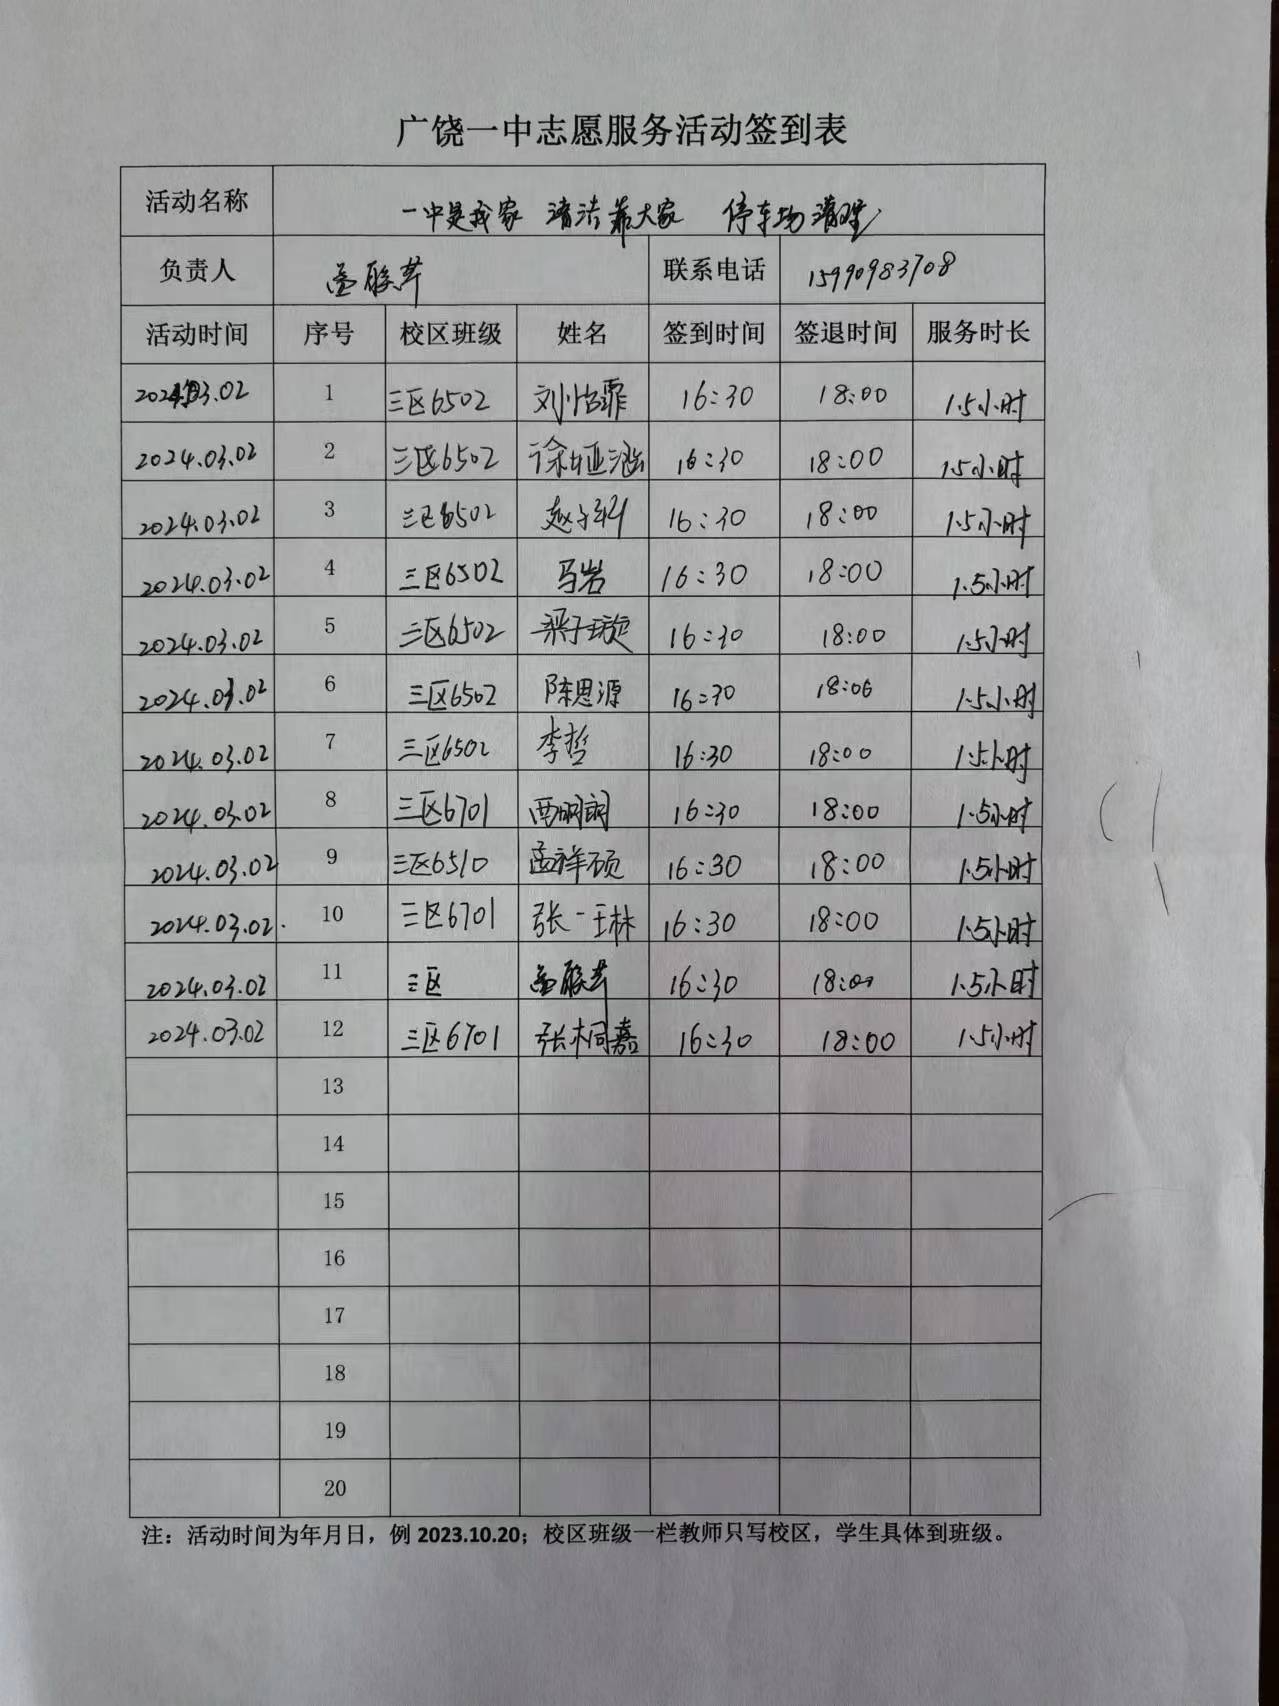 广饶一中志愿服务活动签到表
活动名称 一中是我家 清洁靠大家 停车场清理
负责人 联系电话 15990983708
活动时间 序号 校区班级 姓名 签到时间 签退时间 服务时长
2024.03.02 1 三区6502 刘怡霏 16:30 18:00 1.5小时
2024.03.02 2 三区6502 徐娅涵 16:30 18:00 1.5小时
2024.03.02 3 三区6502 赵子 16:30 18:00 1.5小时
2024.03.02 4 三区6502 马岩 16:30 18:00 1.5小时
2024.03.02 5 三区6502 梁子璇 16:30 18:00 1.5小时
2024.03.02 6 三区6502 陈思源 16:30 18:00 1.5小时
2024.03.02 7 三区6502 李哲 16:30 18:00 1.5小时
2024.03.02 8 三区6701 16:30 18:00 1.5小时
2024.03.02 9 三区6510 孟祥硕 16:30 18:00 1.5小时
2024.03.02. 10 三区6701 张一琳 16:30 18:00 1.5小时
2024.03.02 11 三区 16:30 18:00 1.5小时
2024.03.02 12 三区6701 张桐嘉 16:30 18:00 1.5小时
13
14
15
16
17
18
19
20
注：活动时间为年月日，例 2023.10.20；校区班级一栏教师只写校区，学生具体到班级。